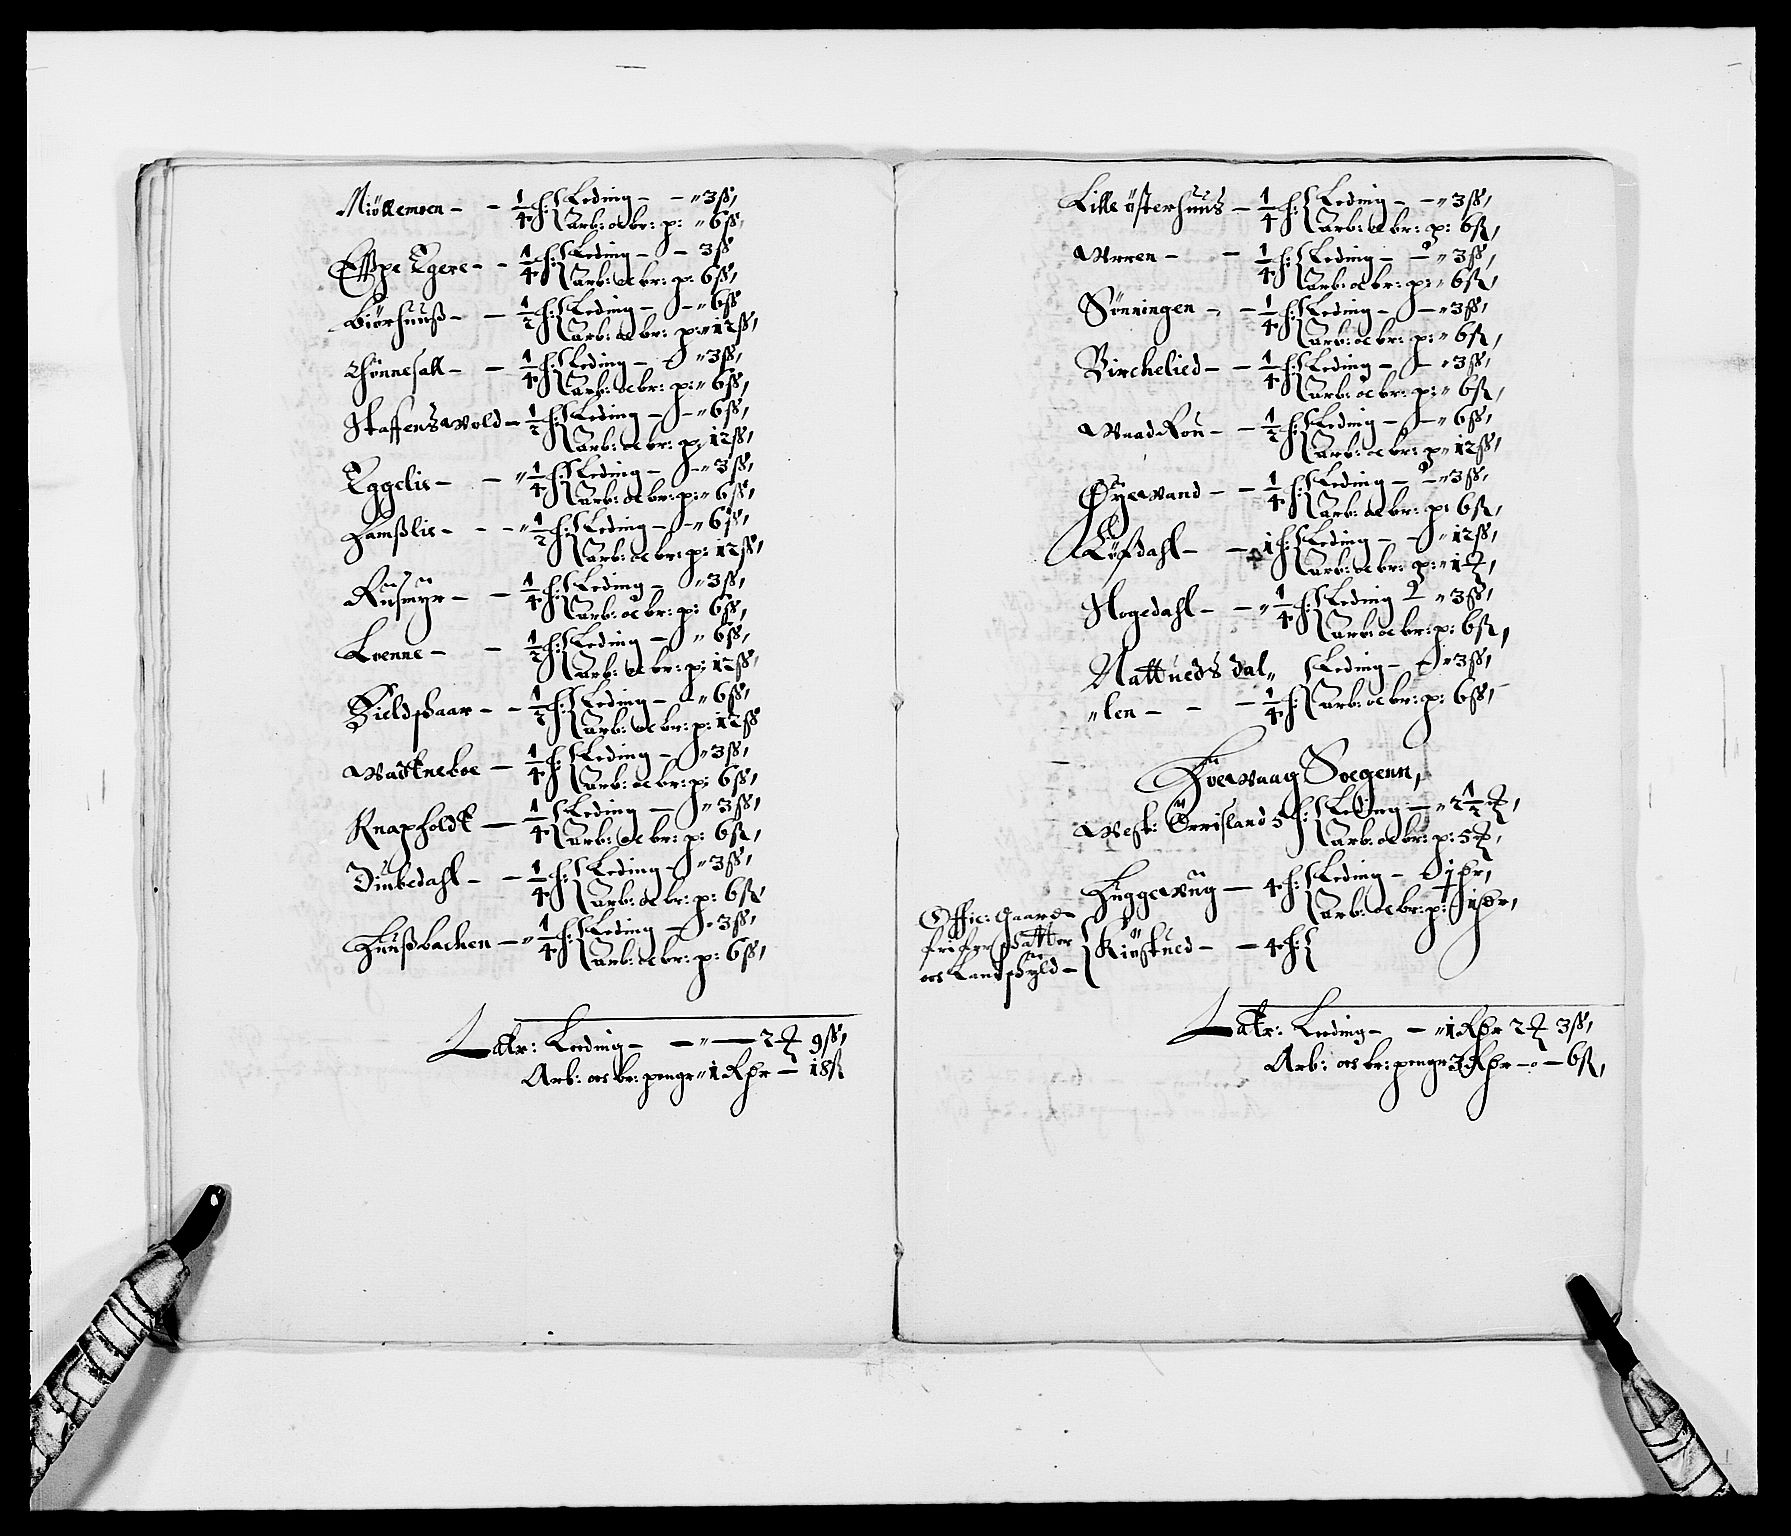 Miöllemoen – – 1/4 h: { Leding – – " 3 ß,
arb: oc br: p: " 6 ß,
Esspe Tgere – – 1/4 h: { Leding – – 3 ß
arb: oc br: p: 6 ß,
Biörhuuß – – 1/2 h: { Leding – – " 6 ß
arb: oc br: p: " 12 ß,
Thönnesall – – 1/4 h: { Leding – " 3 ß,
arb: oc br: p: " 6 ß,
Staffenswold – 1/2 h: { Leding – – " 6 ß,
arb: oc br: p: 12 ß,
Eggelie – – " 1/4 h: { Leding – – " 3 ß,
arb: oc br: p: " 6 ß,
Hamßlie – – – " 1/2 h: { Leding – – " 6 ß,
arb: oc br: p: 12 ß,
Rüsmyr – – 1/4 h: { Leding – " 3 ß,
arb: oc br: p: 6 ß,
Loenne – – 1/2 h: { Leding – " 6 ß,
arb: oc br: p: 12 ß,
Kieldßaar – – 1/2 h: { Leding – – " 6 ß,
arb: oc br: p: 12 ß
Wattneboe – 1/4 h: { Leding – " 3 ß,
arb: oc br: p: 6 ß,
Knapholdt – 1/4 h: { Leding – " 3 ß,
arb: oc br: p: 6 ß,
Dünkedahl – – 1/4 h: { Leding – " 3 ß,
arb: oc br: p: 6 ß,
Huußbachen – " 1/4 h: { Leding – " 3 ß,
arb: oc br: p: 6 ß,
Latr: Leeding – – " – 2 ₰ 9 ß,
Arb: oc br: penge " 1 Rdr – 18 ß
Lille österhuus – 1/4 h: { Leding – – " 3 ß,
arb: oc br: p: 6 ß,
Wrren – – 1/4 h: { Leding – – " 3 ß,
arb: oc br: p: " 6 ß,
Sönningen – – 1/4 h: { Leding – – " 3 ß,
arb: oc br: p: " 6 ß,
Birchelied – – 1/4 h: { Leding – – " 3 ß,
arb: oc br: p: " 6 ß,
Waadkou – – 1/2 h: { Leding – – " 6 ß,
arb: oc br: p: " 12 ß,
Øyewand – – 1/4 h: { Leding – – " 3 ß,
arb: oc br: p: 6 ß,
Löfdahl – – 1 h: { Leding – " 12 ß,
arb: oc br: p: " 1 ₰,
Stogedahl – – " 1/4 h: { Leding " 3 ß,
arb: oc br: p: 6 ß,
Nattueds dal„ { Leding – " 3 ß,
„len – – – 1/4 h: { arb: oc br: p: 6 ß,
Höewaag Soegenn,
West: Örrisland 5 h: { Leding – " 2 1/2 ₰,
arb: oc br: p: 5 ₰,
Hüggewüg – 4 h: { Leding – 1 dr,
arb: oc br: p: 1 dr,
Offic: Gaard –
fri for schatter { Kiöstued – – 4 h: {
oc Landschyld –
Latr: Leeding – – " 1 Rdr 2 ₰ 3 ß,
Arb: oc br: penge 3 Rdr – " – 6 ß,